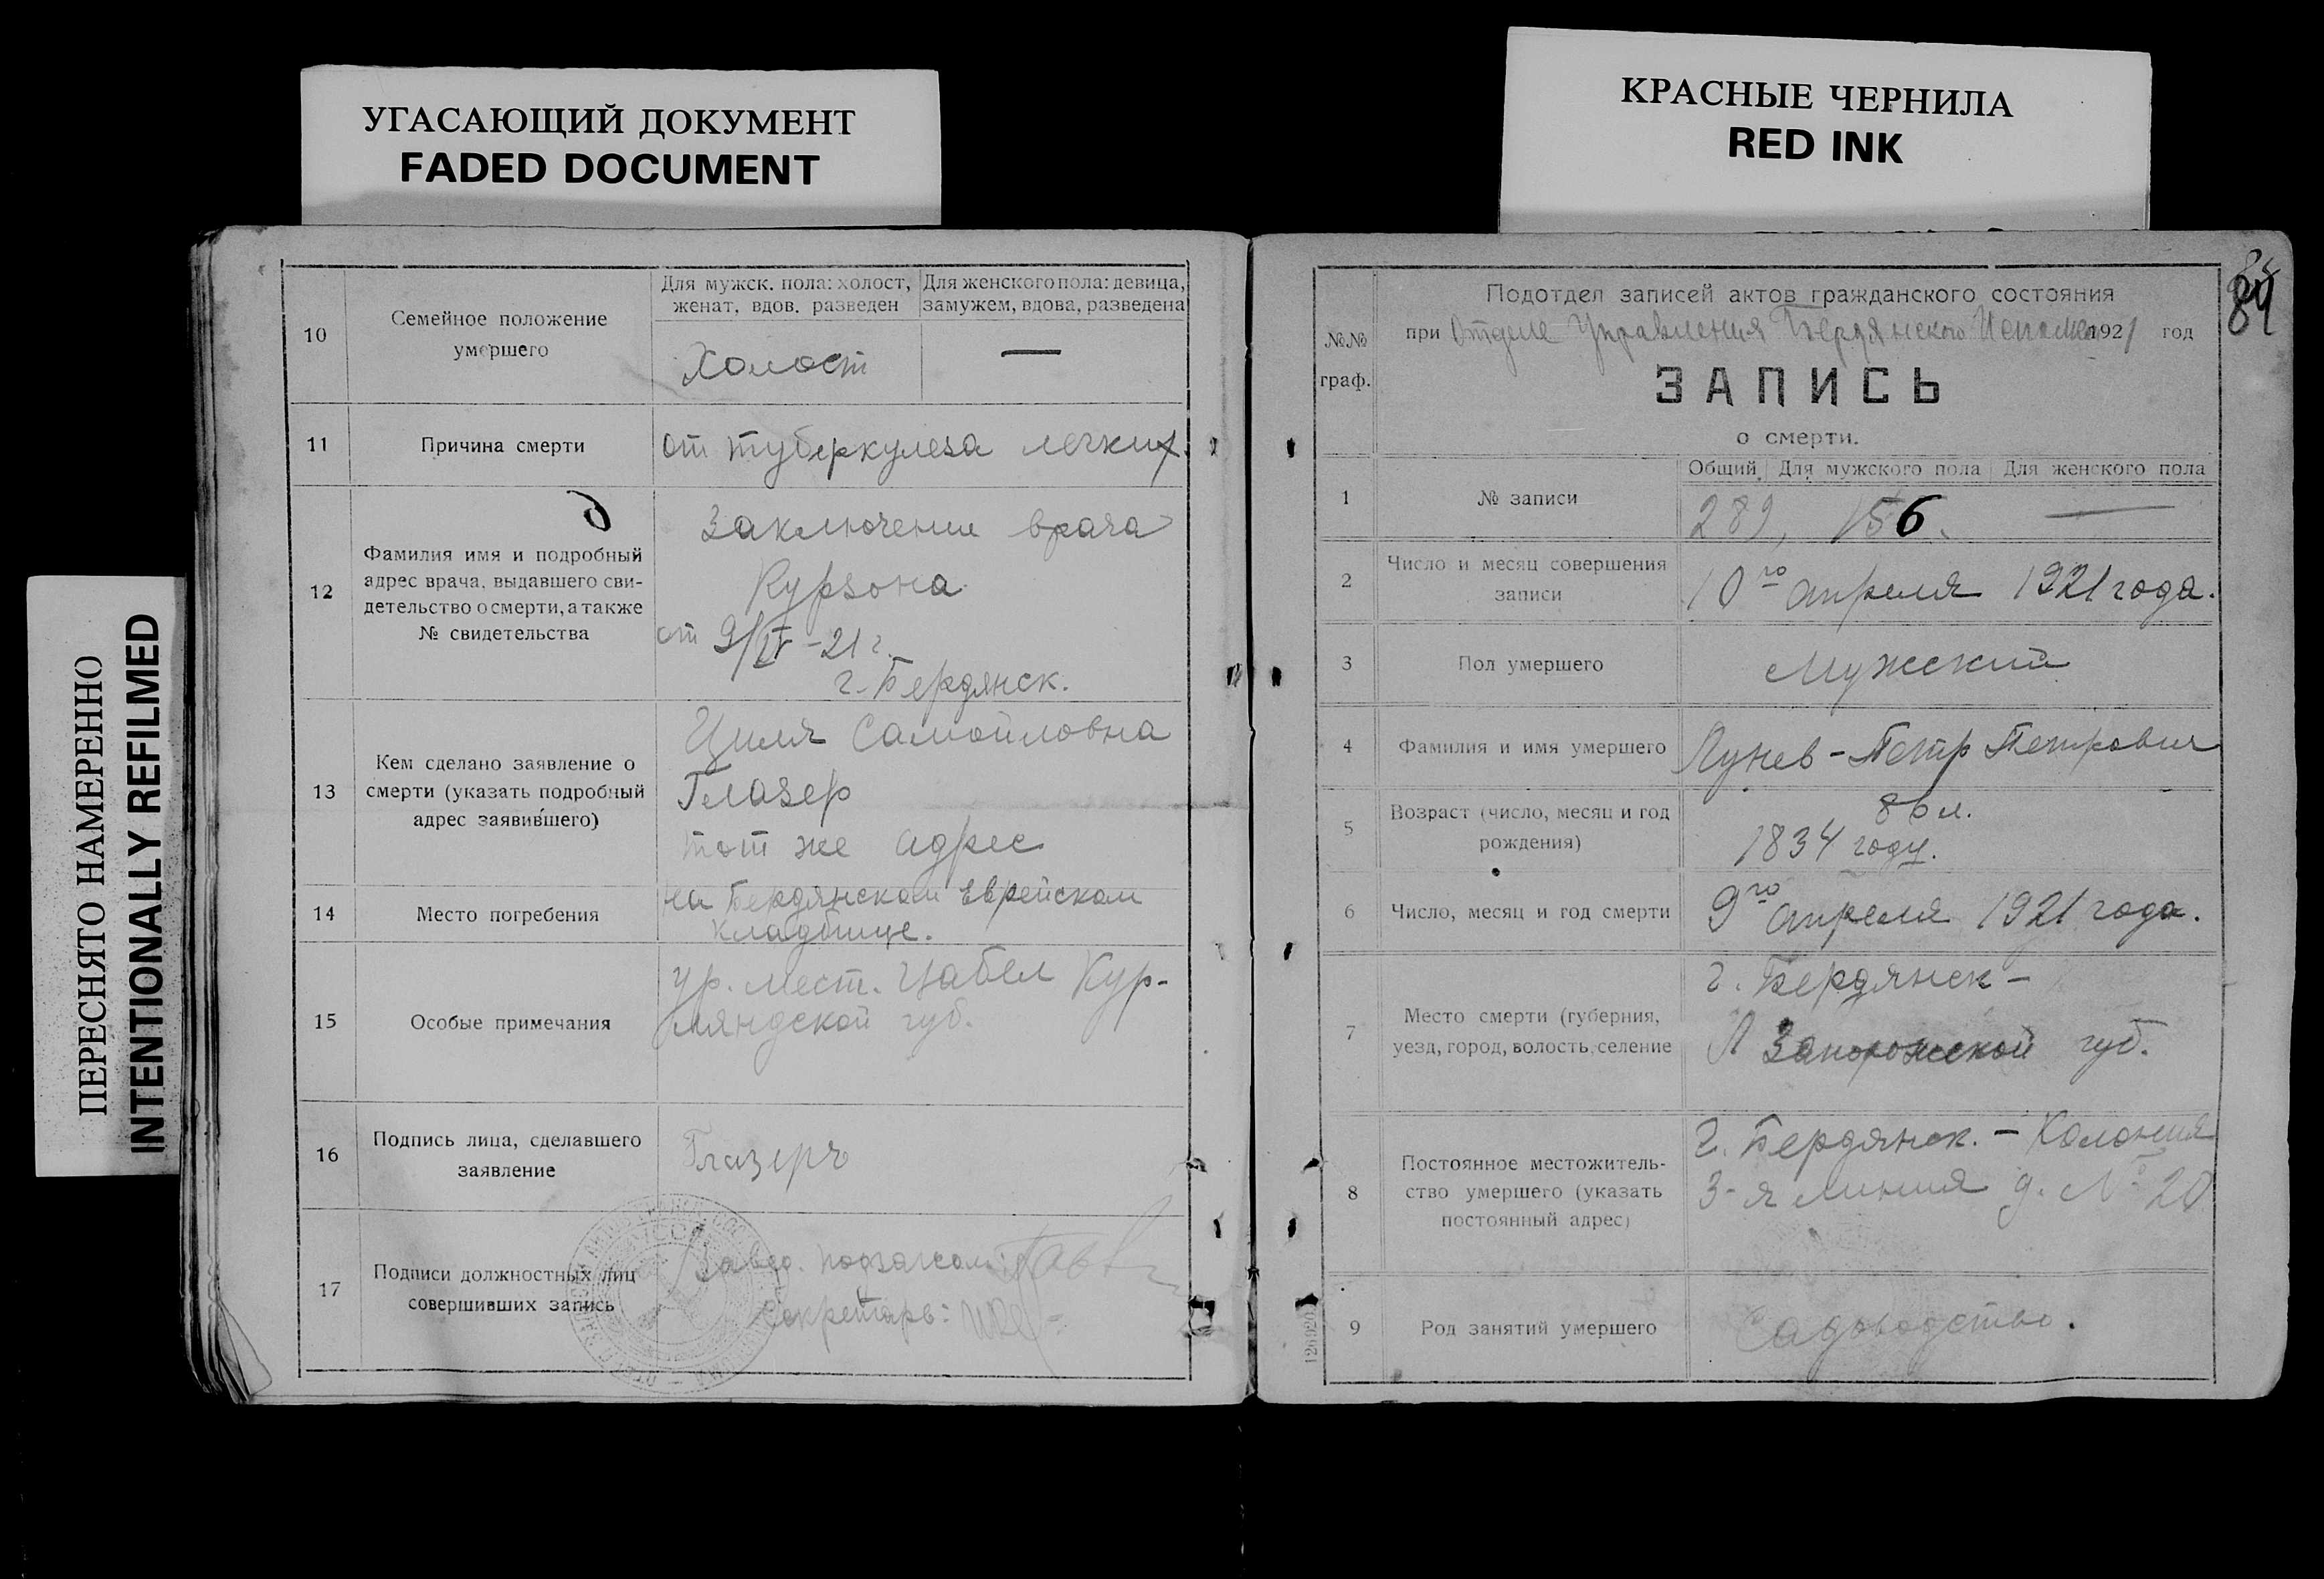 УГАСАЮЩИЙ ДОКУМЕНТ
FADED DOCUMENT
КРАСНЫЕ ЧЕРНИЛА
RED INK
ПЕРЕСНЯТО НАМЕРЕННО
INTENTIONALLY REFILMED
10
Семейное положение
умершего
Для мужск. пола: холост,
женат, вдов. разведен
Для женского пола: девица,
замужем, вдова, разведена
Холост
—
11
Причина смерти
от туберкулеза легких.
12
Фамилия имя и подробный
адрес врача, выдавшего сви-
детельство о смерти, а также
№ свидетельства
Заключение врача
Курзона
от 9/IV-21 г.
г. Бердянск.
13
Кем сделано заявление о
смерти (указать подробный
адрес заявившего)
Циля Самойловна
Глазер
тот же адрес
14
Место погребения
на Бердянском Еврейском
кладбище.
15
Особые примечания
ур. мест. Цабел Кур-
ляндской губ.
16
Подпись лица, сделавшего
заявление
Глазеръ
17
Подписи должностных лиц
совершивших запись
Завед. подзагсом:
Секретарь:
84
№№
граф.
Подотдел записей актов гражданского состояния
при Отделе Управления Бердянского Исполкома 1921 год
ЗАПИСЬ
о смерти.
1
№ записи
Общий
Для мужского пола
Для женского пола
289, 156. —
2
Число и месяц совершения
записи
10го апреля 1921 года.
3
Пол умершего
Мужский
4
Фамилия и имя умершего
Лунев - Петр Петрович
5
Возраст (число, месяц и год
рождения)
86 л.
1834 году.
6
Число, месяц и год смерти
9го апреля 1921 года.
7
Место смерти (губерния,
уезд, город, волость, селение
г. Бердянск -
Запорожской губ.
8
Постоянное местожитель-
ство умершего (указать
постоянный адрес)
г. Бердянск. - Колония
3-я линия д. № 20
9
Род занятий умершего
Садоводство.